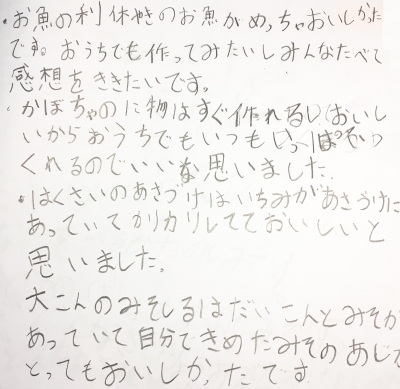 ・お魚の利休やきのお魚がめっちゃおいしかった
です。おうちでも作ってみたいしみんなたべて
感想をききたいです。
・かぼちゃのに物はすぐ作れるし、おいし
いからおうちでもいつもいっぱい
くれるのでいいな思いました。
・はくさいのあさづけはいちみがあさづけに
あっていてカリカリしてておいしいと
思いました。
大こんのみそしるはだいこんとみそが
あっていて自分できめたみそのあじが
とってもおいしかったです